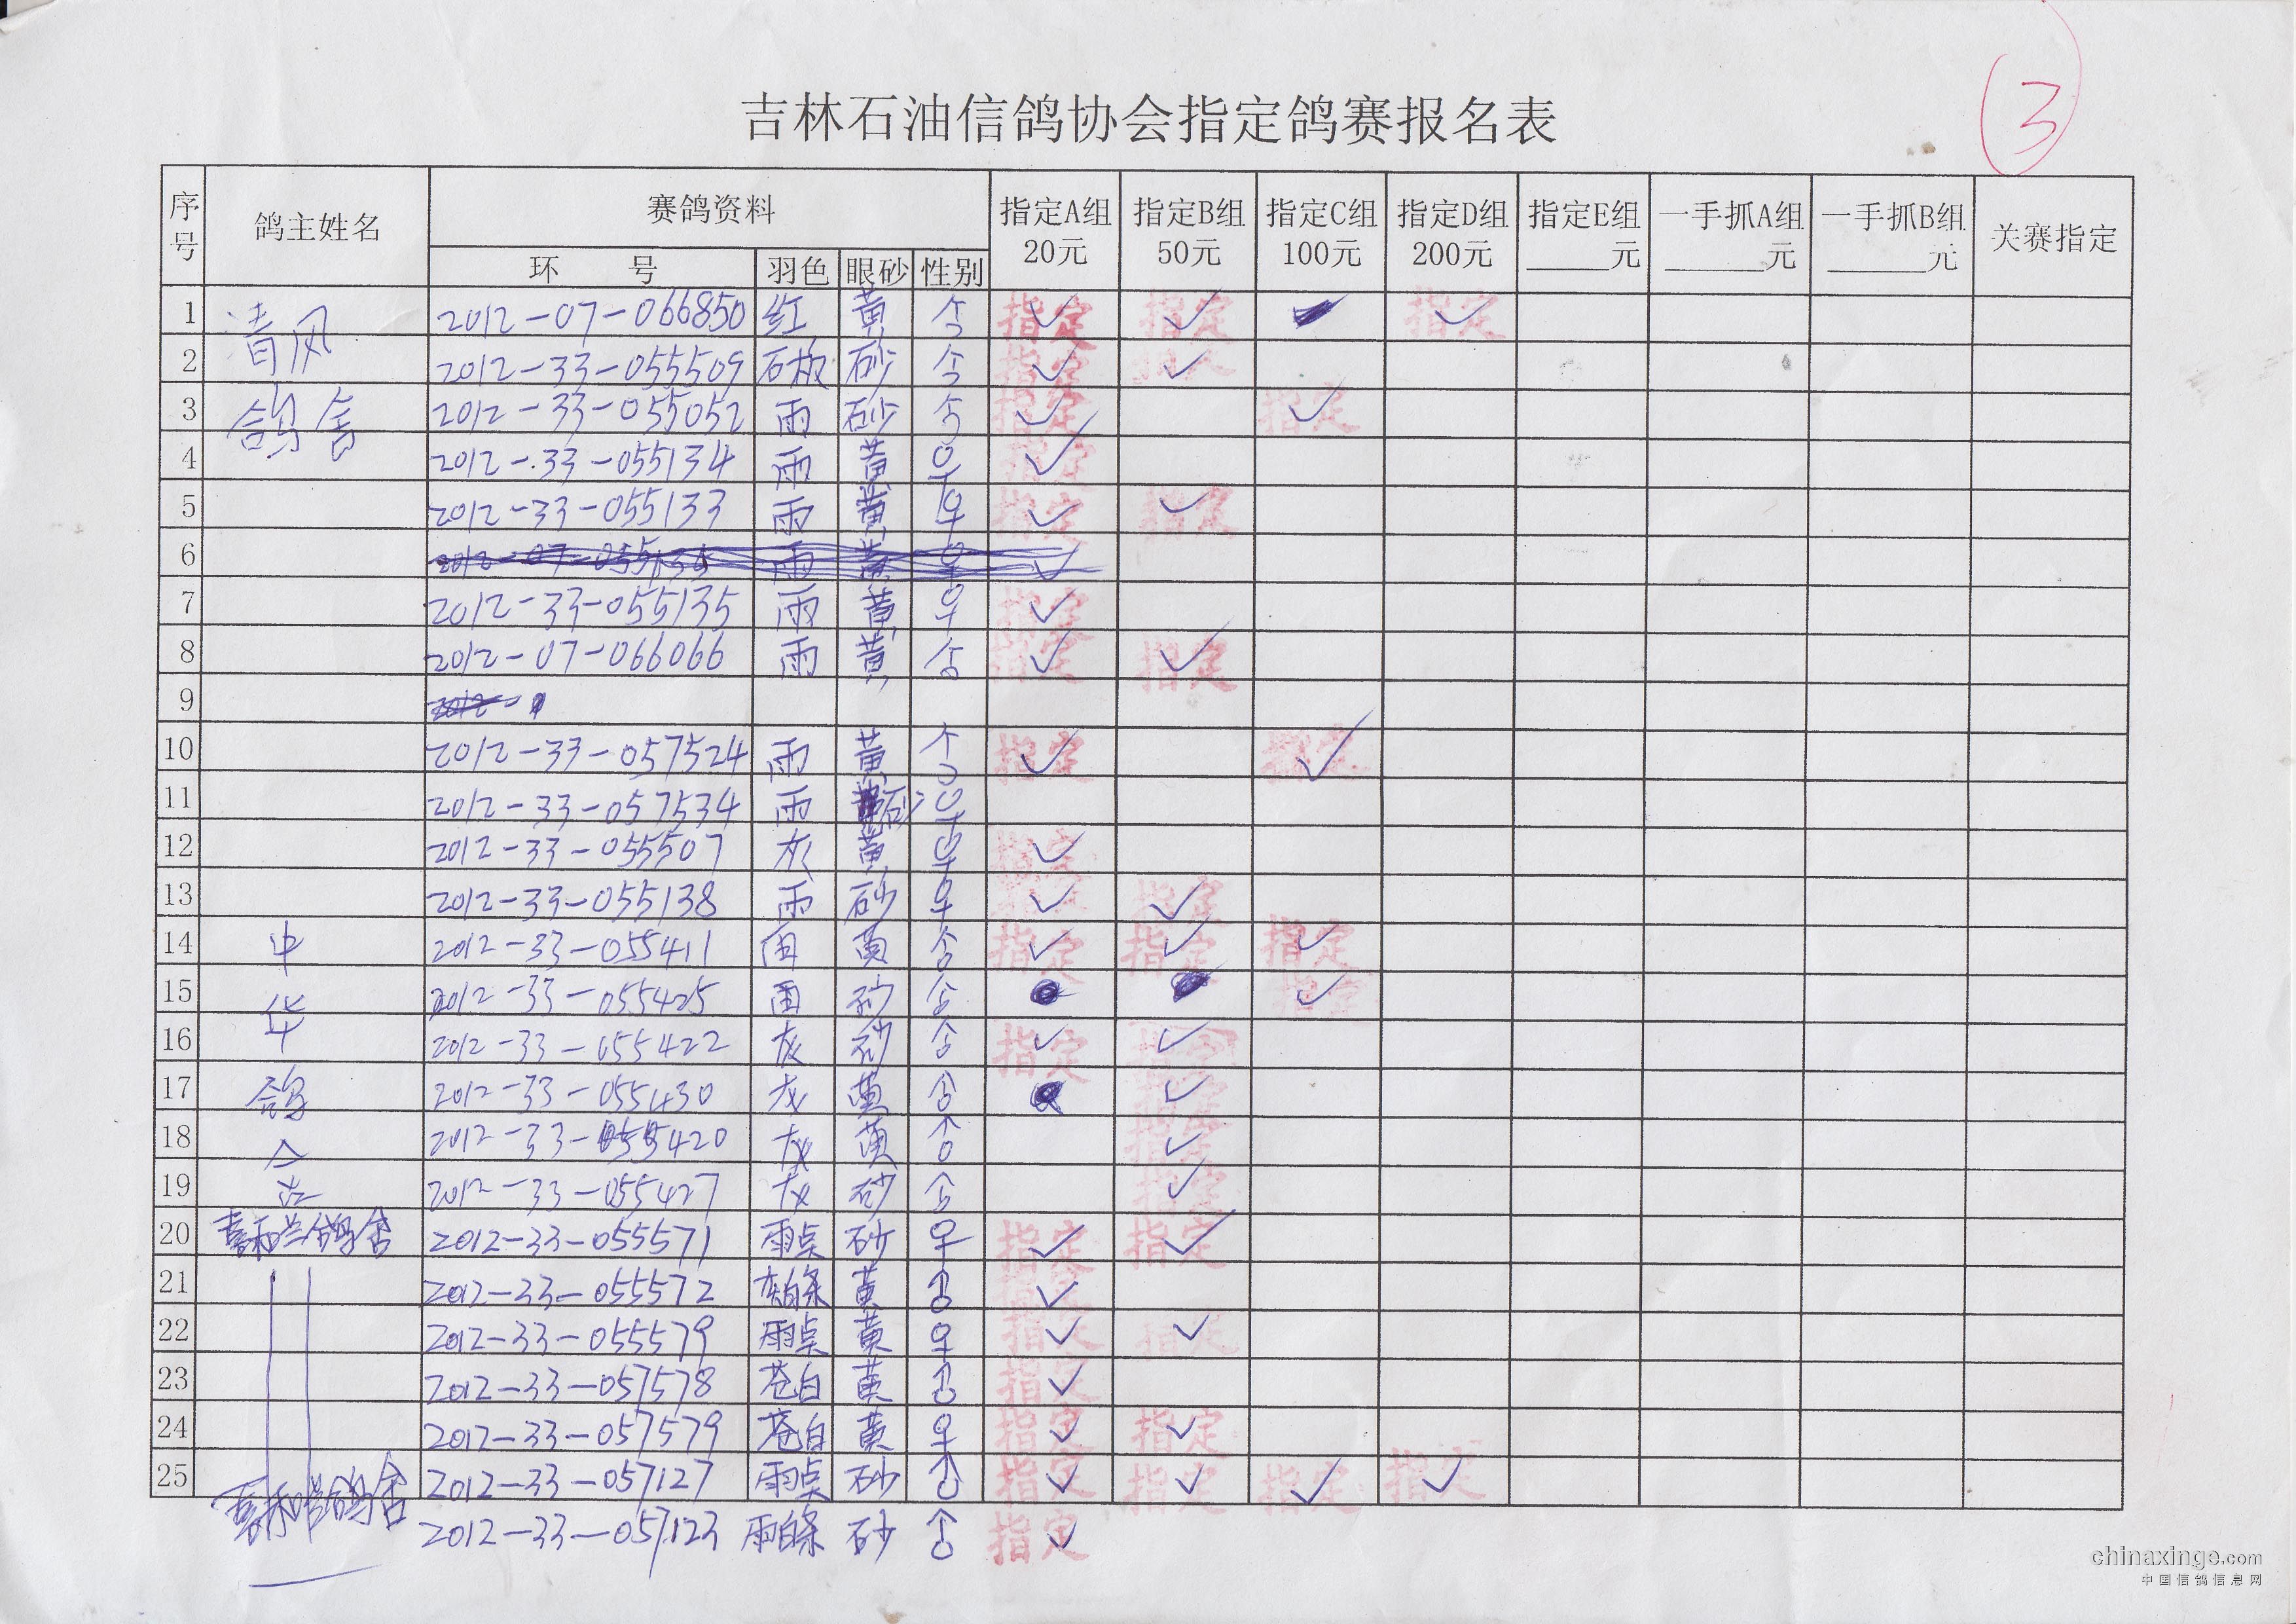 3
吉林石油信鸽协会指定鸽赛报名表
序号 鸽主姓名 赛鸽资料 指定A组 20元 指定B组 50元 指定C组 100元 指定D组 200元 指定E组 ____元 一手抓A组 ____元 一手抓B组 ____元 关赛指定
环 号 羽色 眼砂 性别
1 清风 2012-07-066850 红 黄 ♂ 指定 ✓ 指定 ✓ 指定 ✓
2 2012-33-055509 石板 砂 ♂ 指定 ✓ 指定 ✓
3 鸽舍 2012-33-055052 雨 砂 ♂ 指定 ✓ 指定 ✓
4 2012-33-055134 雨 黄 ♀ 指定 ✓
5 2012-33-055133 雨 黄 ♀ 指定 ✓ 指定 ✓
6 雨 黄 ♀ ✓
7 2012-33-055135 雨 黄 ♀ 指定 ✓
8 2012-07-066066 雨 黄 ♂ 指定 ✓ 指定 ✓
9 2012-
10 2012-33-057524 雨 黄 ♂ 指定 ✓ 指定 ✓
11 2012-33-057534 雨 砂 ♀
12 2012-33-055507 灰 黄 ♀ 指定 ✓
13 2012-33-055138 雨 砂 ♀ 指定 ✓ 指定 ✓
14 中 2012-33-055411 雨 黄 ♂ 指定 ✓ 指定 ✓ 指定 ✓
15 华 2012-33-055425 雨 砂 ♂ 指定 ✓
16 2012-33-055422 灰 砂 ♂ 指定 ✓ 指定 ✓
17 鸽 2012-33-055430 灰 黄 ♂ 指定 ✓
18 2012-33-055420 灰 黄 ♂ 指定 ✓
19 舍 2012-33-055427 灰 砂 ♂ 指定 ✓
20 喜和兰鸽舍 2012-33-055571 雨点 砂 ♀ 指定 ✓ 指定 ✓
21 2012-33-055572 灰白条 黄 ♂ 指定 ✓
22 2012-33-055579 雨点 黄 ♀ 指定 ✓ 指定 ✓
23 2012-33-057578 苍白 黄 ♂ 指定 ✓
24 2012-33-057579 苍白 黄 ♀ 指定 ✓ 指定 ✓
25 喜和兰鸽舍 2012-33-057127 雨点 砂 ♂ 指定 ✓ 指定 ✓ 指定 ✓ 指定 ✓
2012-33-057123 雨白条 砂 ♂ 指定 ✓
chinaxinge.com
中国信鸽信息网